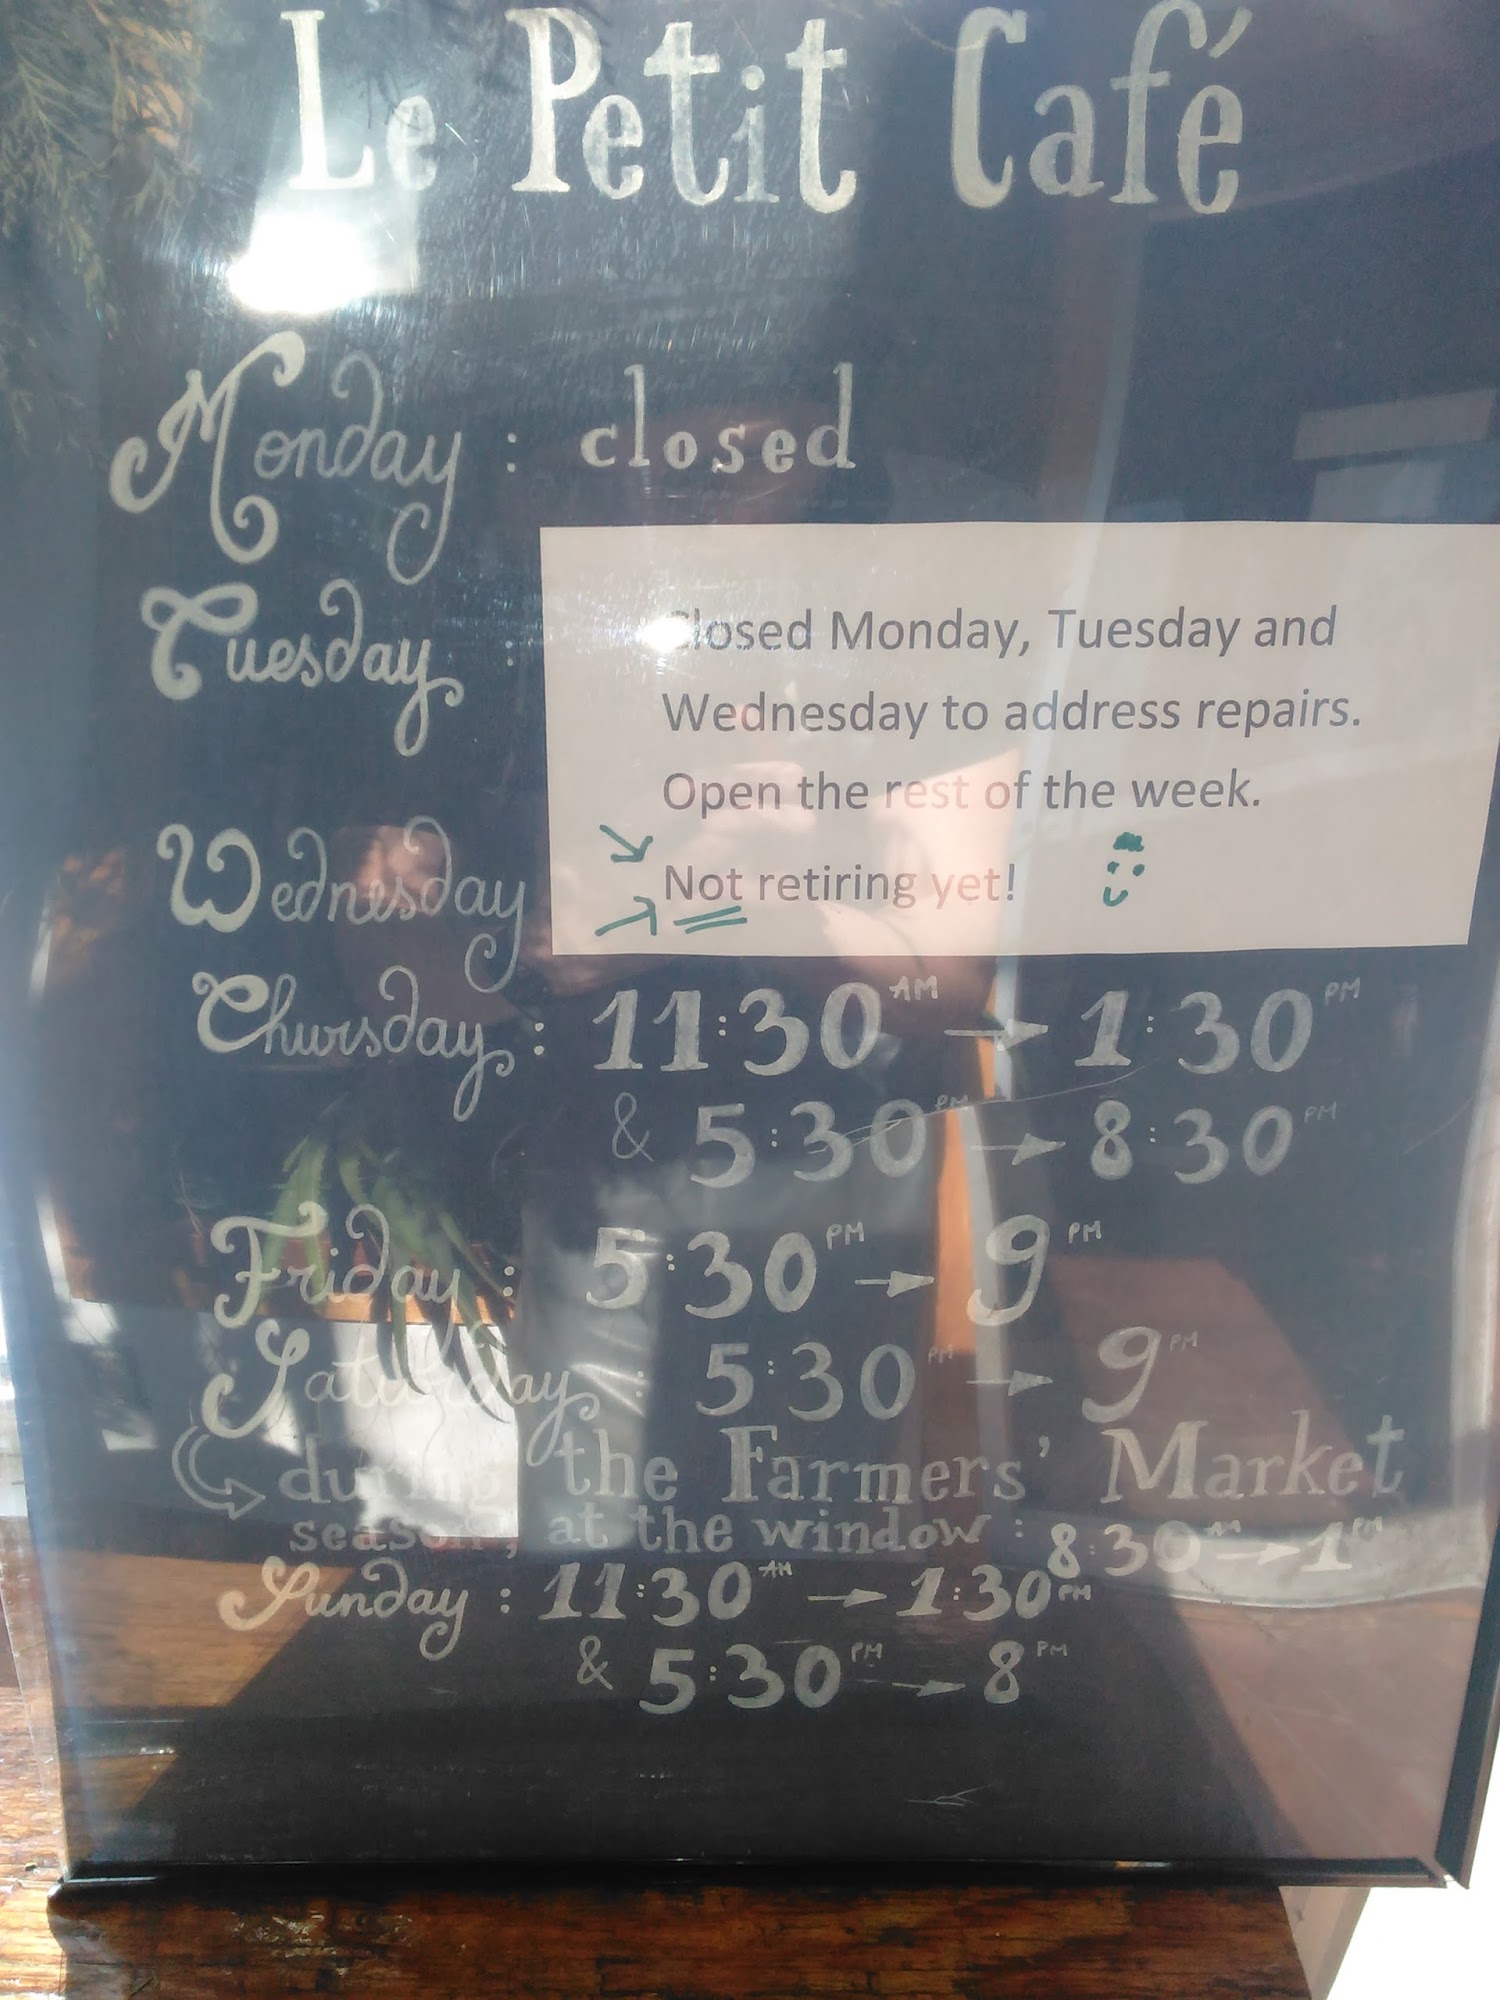 Le Petit Café
Monday : closed
Tuesday :
Closed Monday, Tuesday and
Wednesday to address repairs.
Open the rest of the week.
Not retiring yet!
Wednesday
Thursday : 11:30 AM → 1:30 PM
& 5:30 PM → 8:30 PM
Friday : 5:30 PM → 9 PM
Saturday : 5:30 PM → 9 PM
during the Farmers' Market
season, at the window : 8:30 AM → 1 PM
Sunday : 11:30 AM → 1:30 PM
& 5:30 PM → 8 PM